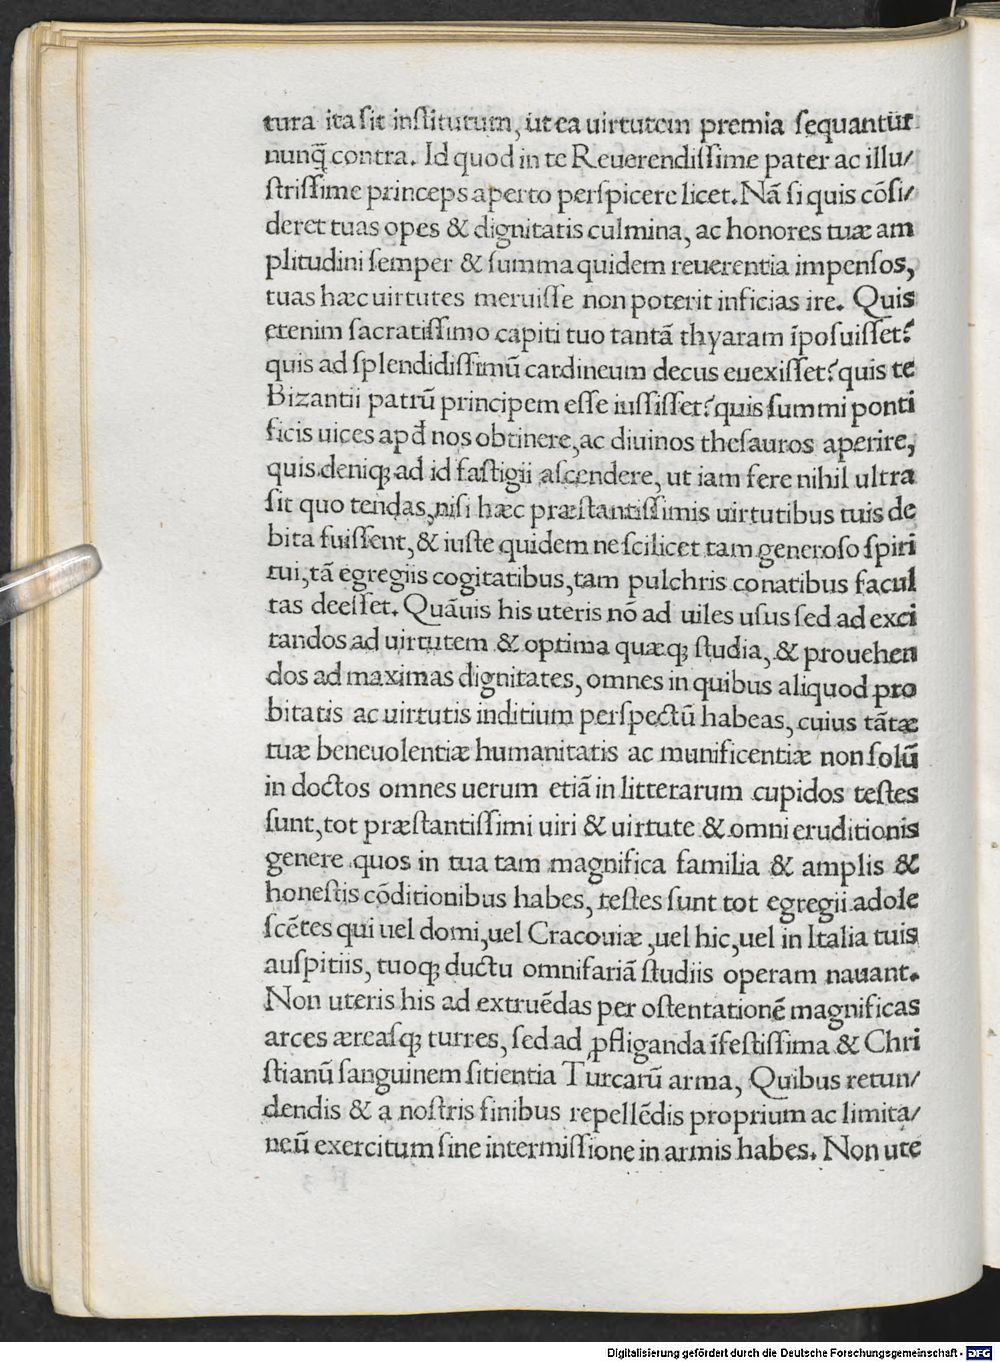 tura ita sit institutum, ut ea uirtutem premia sequantur
nunq̄ contra. Id quod in te Reuerendissime pater ac illu/
strissime princeps aperto perspicere licet. Nā si quis cōsi/
deret tuas opes & dignitatis culmina, ac honores tuæ am
plitudini semper & summa quidem reuerentia impensos,
tuas hæc uirtutes meruisse non poterit inficias ire. Quis
etenim sacratissimo capiti tuo tantā thyaram īposuisset?
quis ad splendidissimū cardineum decus euexisset? quis te
Bizantii patrū principem esse iussisset? quis summi ponti
ficis uices apd̄ nos obtinere, ac diuinos thesauros aperire,
quis deniqꝫ ad id fastigii ascendere, ut iam fere nihil ultra
sit quo tendas, nisi hæc præstantissimis uirtutibus tuis de
bita fuissent, & iuste quidem ne scilicet tam generoso spiri
tui, tā egregiis cogitatibus, tam pulchris conatibus facul
tas deesset. Quāuis his uteris nō ad uiles usus sed ad exci
tandos ad uirtutem & optima quæqꝫ studia, & prouehen
dos ad maximas dignitates, omnes in quibus aliquod pro
bitatis ac uirtutis inditium perspectū habeas, cuius tātæ
tuæ beneuolentiæ humanitatis ac munificentiæ non solū
in doctos omnes uerum etiā in litterarum cupidos testes
sunt, tot præstantissimi uiri & uirtute & omni eruditionis
genere quos in tua tam magnifica familia & amplis &
honestis cōditionibus habes, testes sunt tot egregii adole
scētes qui uel domi, uel Cracouiæ, uel hic, uel in Italia tuis
auspitiis, tuoqꝫ ductu omnifariā studiis operam nauant.
Non uteris his ad extruēdas per ostentationē magnificas
arces æreasqꝫ turres, sed ad ꝓfliganda īfestissima & Chri
stianū sanguinem sitientia Turcarū arma, Quibus retun/
dendis & a nostris finibus repellēdis proprium ac limita/
neū exercitum sine intermissione in armis habes. Non ute
Digitalisierung gefördert durch die Deutsche Forschungsgemeinschaft - DFG